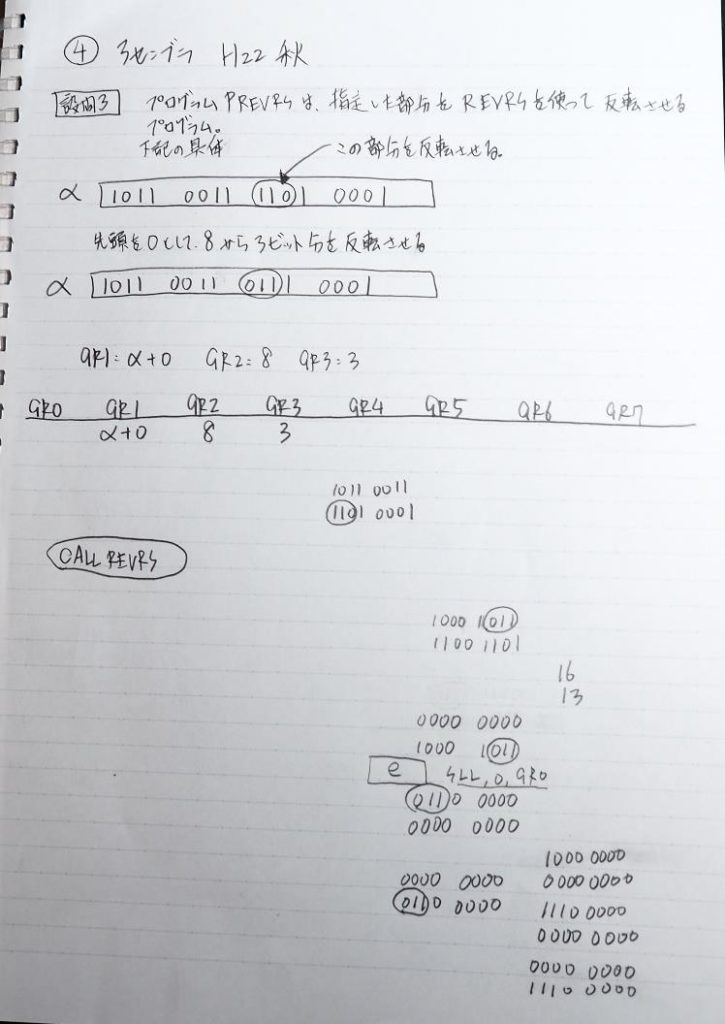 ④ アセンブラ H22 秋
設問3 プログラム PREVRS は、指定した部分を REVRS を使って 反転させる
プログラム。
下記の具体
この部分を反転させる。
α 1011 0011 1101 0001
先頭を0として、8から3ビット分を反転させる
α 1011 0011 0111 0001
GR1=α+0 GR2=8 GR3=3
GR0 GR1 GR2 GR3 GR4 GR5 GR6 GR7
α+0 8 3
1011 0011
1101 0001
CALL REVRS
1000 1011
1100 1101
16
13
0000 0000
1000 1011
e SLL,0,GR0
0110 0000
0000 0000
1000 0000
0000 0000
0000 0000
0110 0000
1110 0000
0000 0000
0000 0000
1110 0000